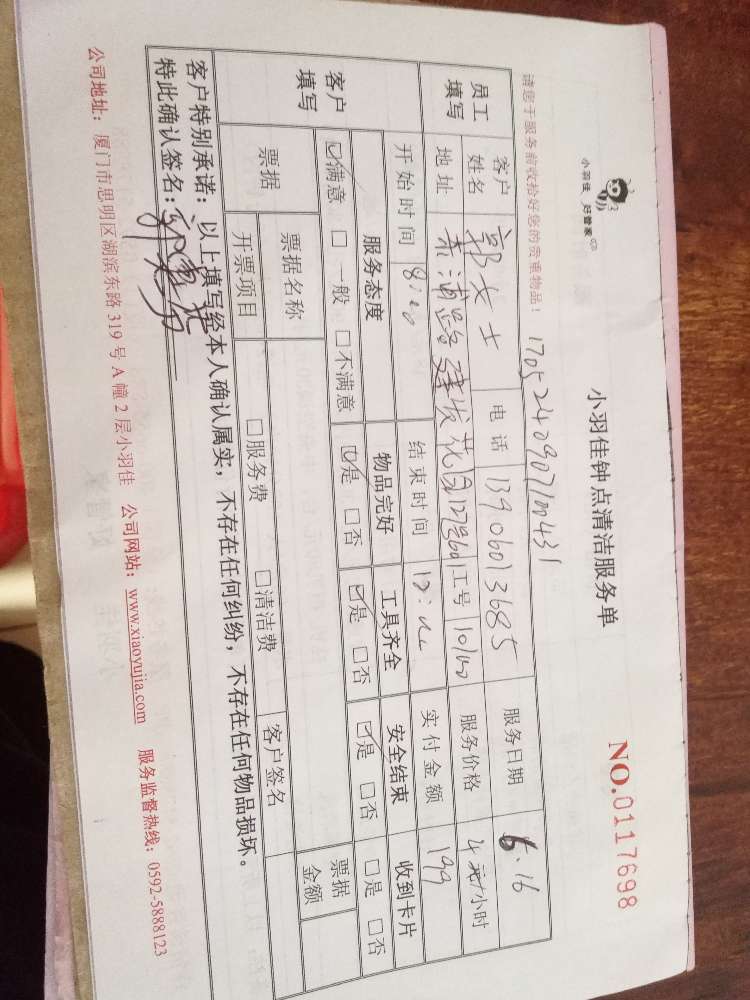 小羽佳 好管家
小羽佳钟点清洁服务单
NO.0117698
请您于服务前收拾好您的贵重物品！
1705240907100431
员工填写
客户姓名 郭女士 电话 13906013685 服务日期 6.16
地址 花园127号601 工号 服务价格 4 元/小时
开始时间 8:00 结束时间 12:00 实付金额 199
客户填写
服务态度 物品完好 工具齐全 安全结束 收到卡片
☑满意 □一般 □不满意 ☑是 □否 ☑是 □否 ☑是 □否 □是 □否
票据 票据名称 客户签名 票据金额
开票项目 □服务费 □清洁费
客户特别承诺：以上填写经本人确认属实，不存在任何纠纷，不存在任何物品损坏。
特此确认签名：
公司地址：厦门市思明区湖滨东路 319 号 A 幢 2 层小羽佳 公司网站：www.xiaoyujia.com 服务监督热线：0592-5888123